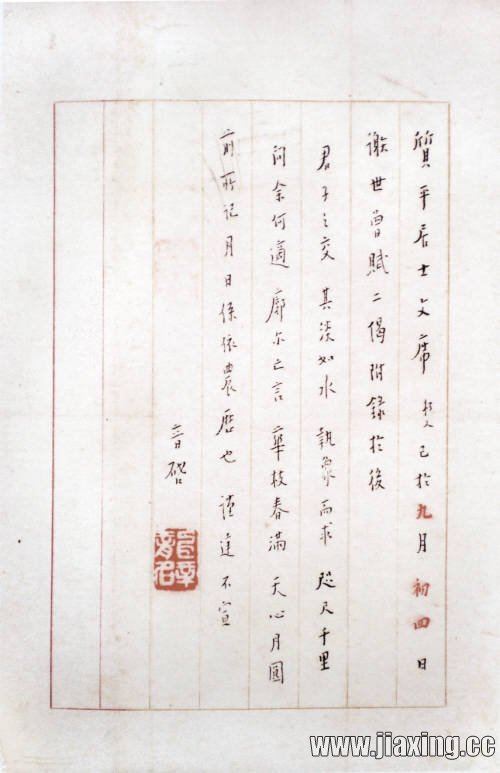 質平居士文席 朽人已於九月初四日
謝世曾賦二偈附錄於後
君子之交 其淡如水 執象而求 咫尺千里
問余何適 廓尔亡言 華枝春滿 天心月圓
前所記月日係依農歷也 謹達不宣
音啓
www.jiaxing.cc